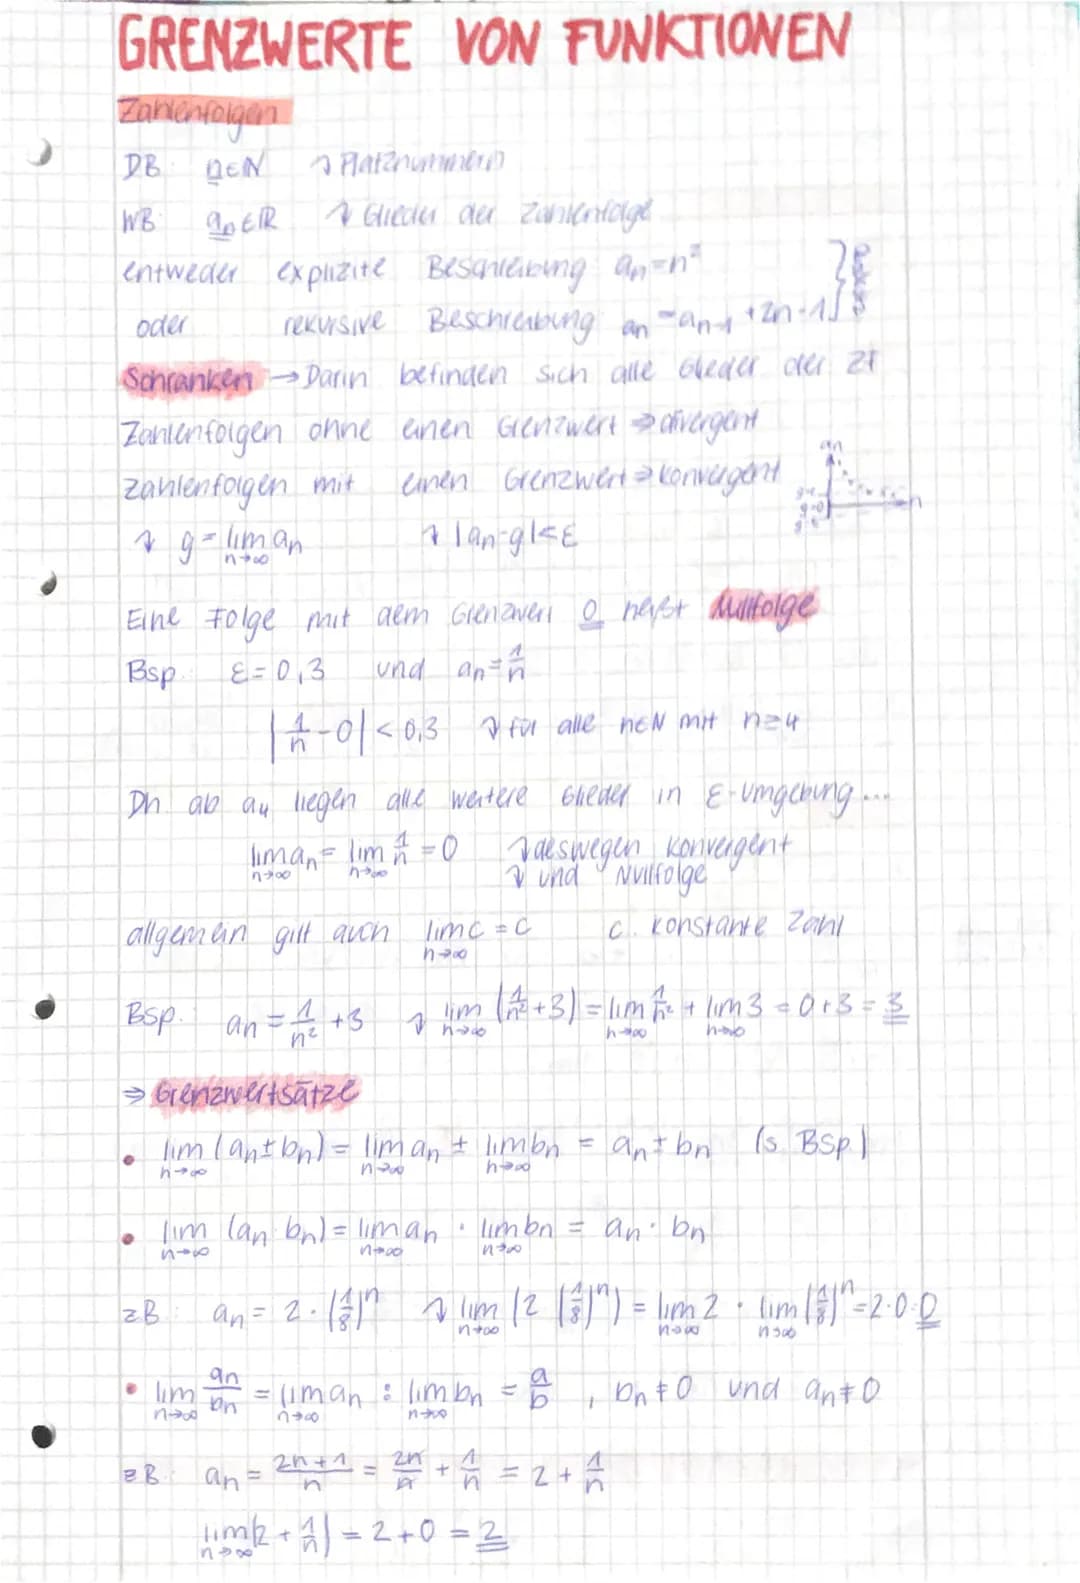 GRENZWERTE VON FUNKTIONEN
Zahlenfolgen
DB: n∈N ↴ Platznummern
WB: an∈R ↴ Glieder der Zahlenfolge
entweder explizite Beschreibung an=n²
oder rekursive Beschreibung an=an-1+2n-1
Schranken → Darin befinden sich alle Glieder der ZF
Zahlenfolgen ohne einen Grenzwert ⇒ divergent
Zahlenfolgen mit einen Grenzwert ⇒ konvergent
↴ g = lim an n→∞ ↴ |an-g|<ε
an n
Eine Folge mit dem Grenzwert 0 heißt Nullfolge
Bsp. ε=0,3 und an=1/n
|1/n-0|<0,3 ↴ für alle n∈N mit n≥4
Dh ab a4 liegen alle weitere Glieder in ε-Umgebung...
lim an n→∞ = lim 1/n n→∞ = 0 ↴ deswegen konvergent
↴ und Nullfolge
allgemein gilt auch lim c n→∞ = c c. konstante Zahl
Bsp. an = 1/n² + 3 ↴ lim n→∞ (1/n²+3) = lim n→∞ 1/n² + lim n→∞ 3 = 0+3 = 3
⇒ Grenzwertsätze
• lim n→∞ (an±bn) = lim n→∞ an ± lim n→∞ bn = an±bn (s BSp.)
• lim n→∞ (an·bn) = lim n→∞ an · lim n→∞ bn = an·bn
zB: an = 2·(1/8)ⁿ ↴ lim n→∞ (2·(1/8)ⁿ) = lim n→∞ 2 · lim n→∞ (1/8)ⁿ = 2·0=0
• lim n→∞ an/bn = lim n→∞ an : lim n→∞ bn = a/b , bn≠0 und an≠0
zB: an = 2n+1/n = 2n/n + 1/n = 2 + 1/n
lim n→∞ (2+1/n) = 2+0 = 2